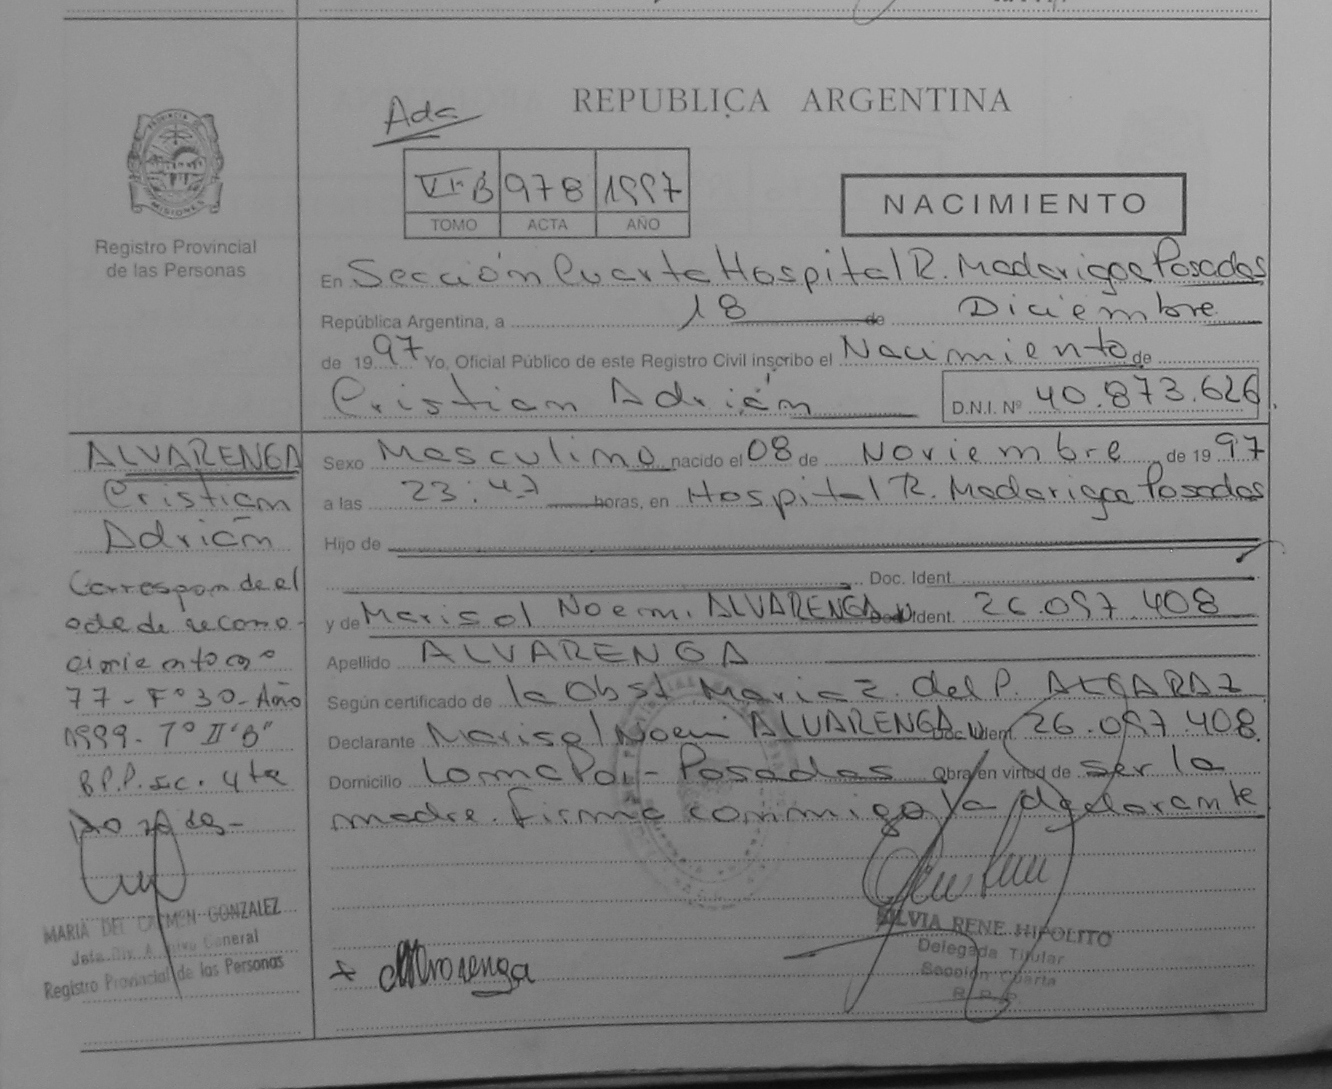 Ada
REPUBLICA ARGENTINA
VI-B 978 1997
TOMO ACTA AÑO
NACIMIENTO
PROVINCIA DE MISIONES
Registro Provincial
de las Personas
En Sección Cuarta Hospital R. Madariaga Posadas
República Argentina, a 18 de Diciembre
de 1997 Yo, Oficial Público de este Registro Civil inscribo el Nacimiento de
Cristian Adrián D.N.I. Nº 40.873.626
Sexo Masculino nacido el 08 de Noviembre de 1997
a las 23:47 horas, en Hospital R. Madariaga Posadas
Hijo de
Doc. Ident.
y de Marisol Noemi ALVARENGA Doc. Ident. 26.097.408
Apellido ALVARENGA
Según certificado de la Obst. Maria Z. del P. ALGARAZ
Declarante Marisol Noemi ALVARENGA Doc. Ident. 26.097.408
Domicilio Loma Poi - Posadas Obra en virtud de ser la
madre. Firma conmigo la declarante
ALVARENGA
Cristian
Adrián
Corresponde el
acta de recono-
cimiento nº
77 - Fº 30 - Año
1999 - Tº II "B"
R.P.P. sc. 4ta
Posadas-
MARIA DEL CARMEN GONZALEZ
Jefa Div. Archivo General
Registro Provincial de las Personas
x Alvarenga
SILVIA RENE HIPOLITO
Delegada Titular
Sección Cuarta
R.P.P.